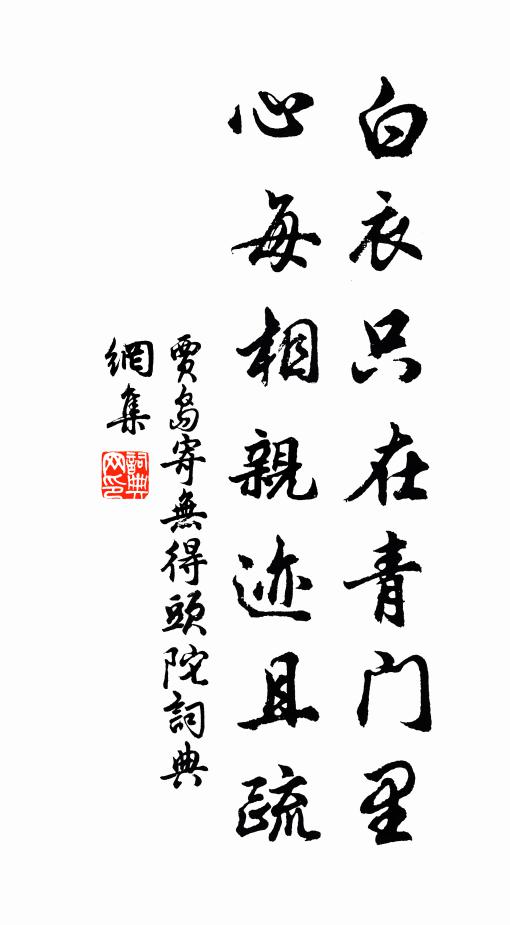 白衣只在青门里
心每相親迹且疏
賈島寄無得頭陀詞典
網集
詞典网印